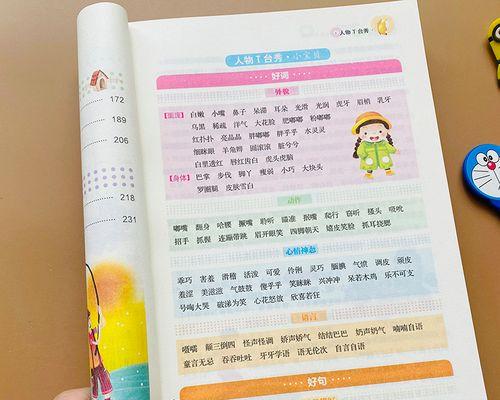 人物T台秀
人物T台秀·小宝贝
好词
外貌
【面庞】白嫩 小嘴 鼻子 呆滞 耳朵 光滑 光润 虎牙 眉梢 乳牙
乌黑 稀疏 洋气 大花脸 肥嘟嘟 粉嘟嘟
红扑扑 亮晶晶 胖嘟嘟 胖乎乎 水灵灵
细眯眼 羊角辫 圆滚滚 脏兮兮
白里透红 唇红齿白 虎头虎脑
【身体】巴掌 步伐 脚丫 瘦弱 小巧 大块头
罗圈腿 皮肤雪白
动作
嘟嘴 翻身 哈腰 撅嘴 聆听 瞄准 抿嘴 爬行 窃听 搔头 吸吮
招手 抓握 连蹦带跳 眉开眼笑 四脚朝天 嬉皮笑脸 抓耳挠腮
心情神态
乖巧 害羞 滑稽 活泼 可爱 伶俐 灵巧 腼腆 气愤 调皮 顽皮
羞涩 美滋滋 气鼓鼓 傻乎乎 笑眯眯 兴冲冲 呆若木鸡 乐不可支
号啕大哭 破涕为笑 心花怒放 欣喜若狂
语言
嗫嚅 颠三倒四 怪声怪调 娇声娇气 结结巴巴 奶声奶气 喃喃自语
童言无忌 吞吞吐吐 牙牙学语 语无伦次 自言自语
好句
172
189
206
218
231